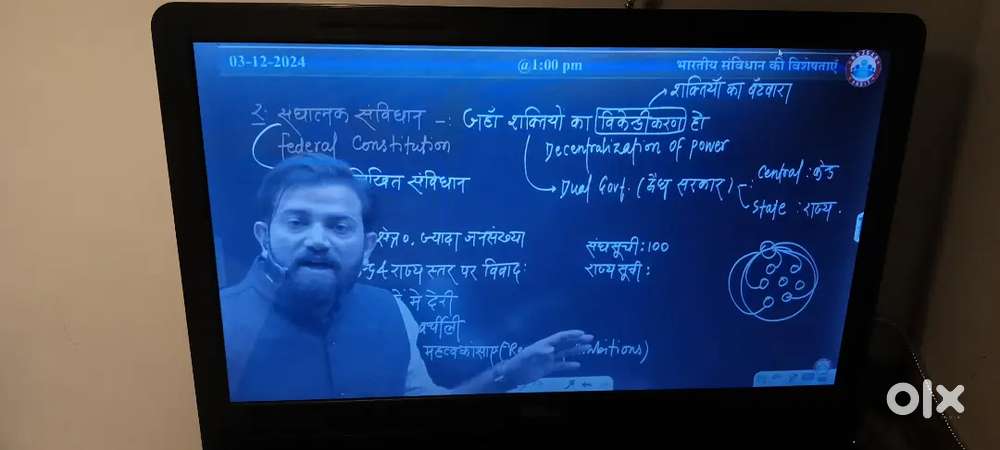 03-12-2024 @1:00 pm भारतीय संविधान की विशेषताएँ
शक्तियों का बँटवारा
2: सघात्मक संविधान -: जहाँ शक्तियों का विकेन्द्रीकरण हो
Federal Constitution
Decentralization of power
लिखित संविधान
Dual Govt. (द्वैध सरकार)
Central : केंद्र
State : राज्य.
क्षेत्र०. ज्यादा जनसंख्या
संघसूची: 100
राज्य सूची:
राज्य स्तर पर विवाद:
में देरी
खर्चीली
महत्वकांक्षाए
olx